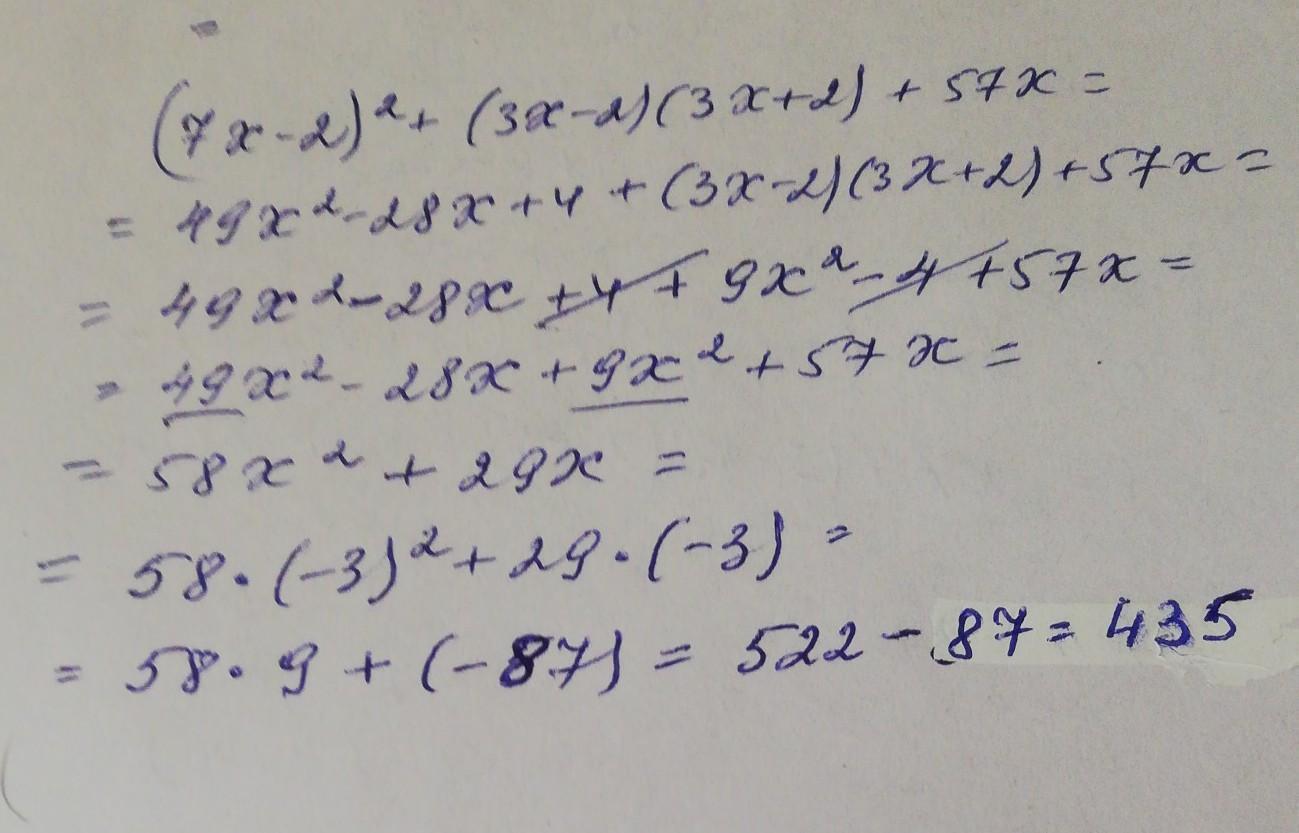 (7x-2)² + (3x-2)(3x+2) + 57x =
= 49x² - 28x + 4 + (3x-2)(3x+2) + 57x =
= 49x² - 28x + 4 + 9x² - 4 + 57x =
= 49x² - 28x + 9x² + 57x =
= 58x² + 29x =
= 58·(-3)² + 29·(-3) =
= 58·9 + (-87) = 522 - 87 = 435